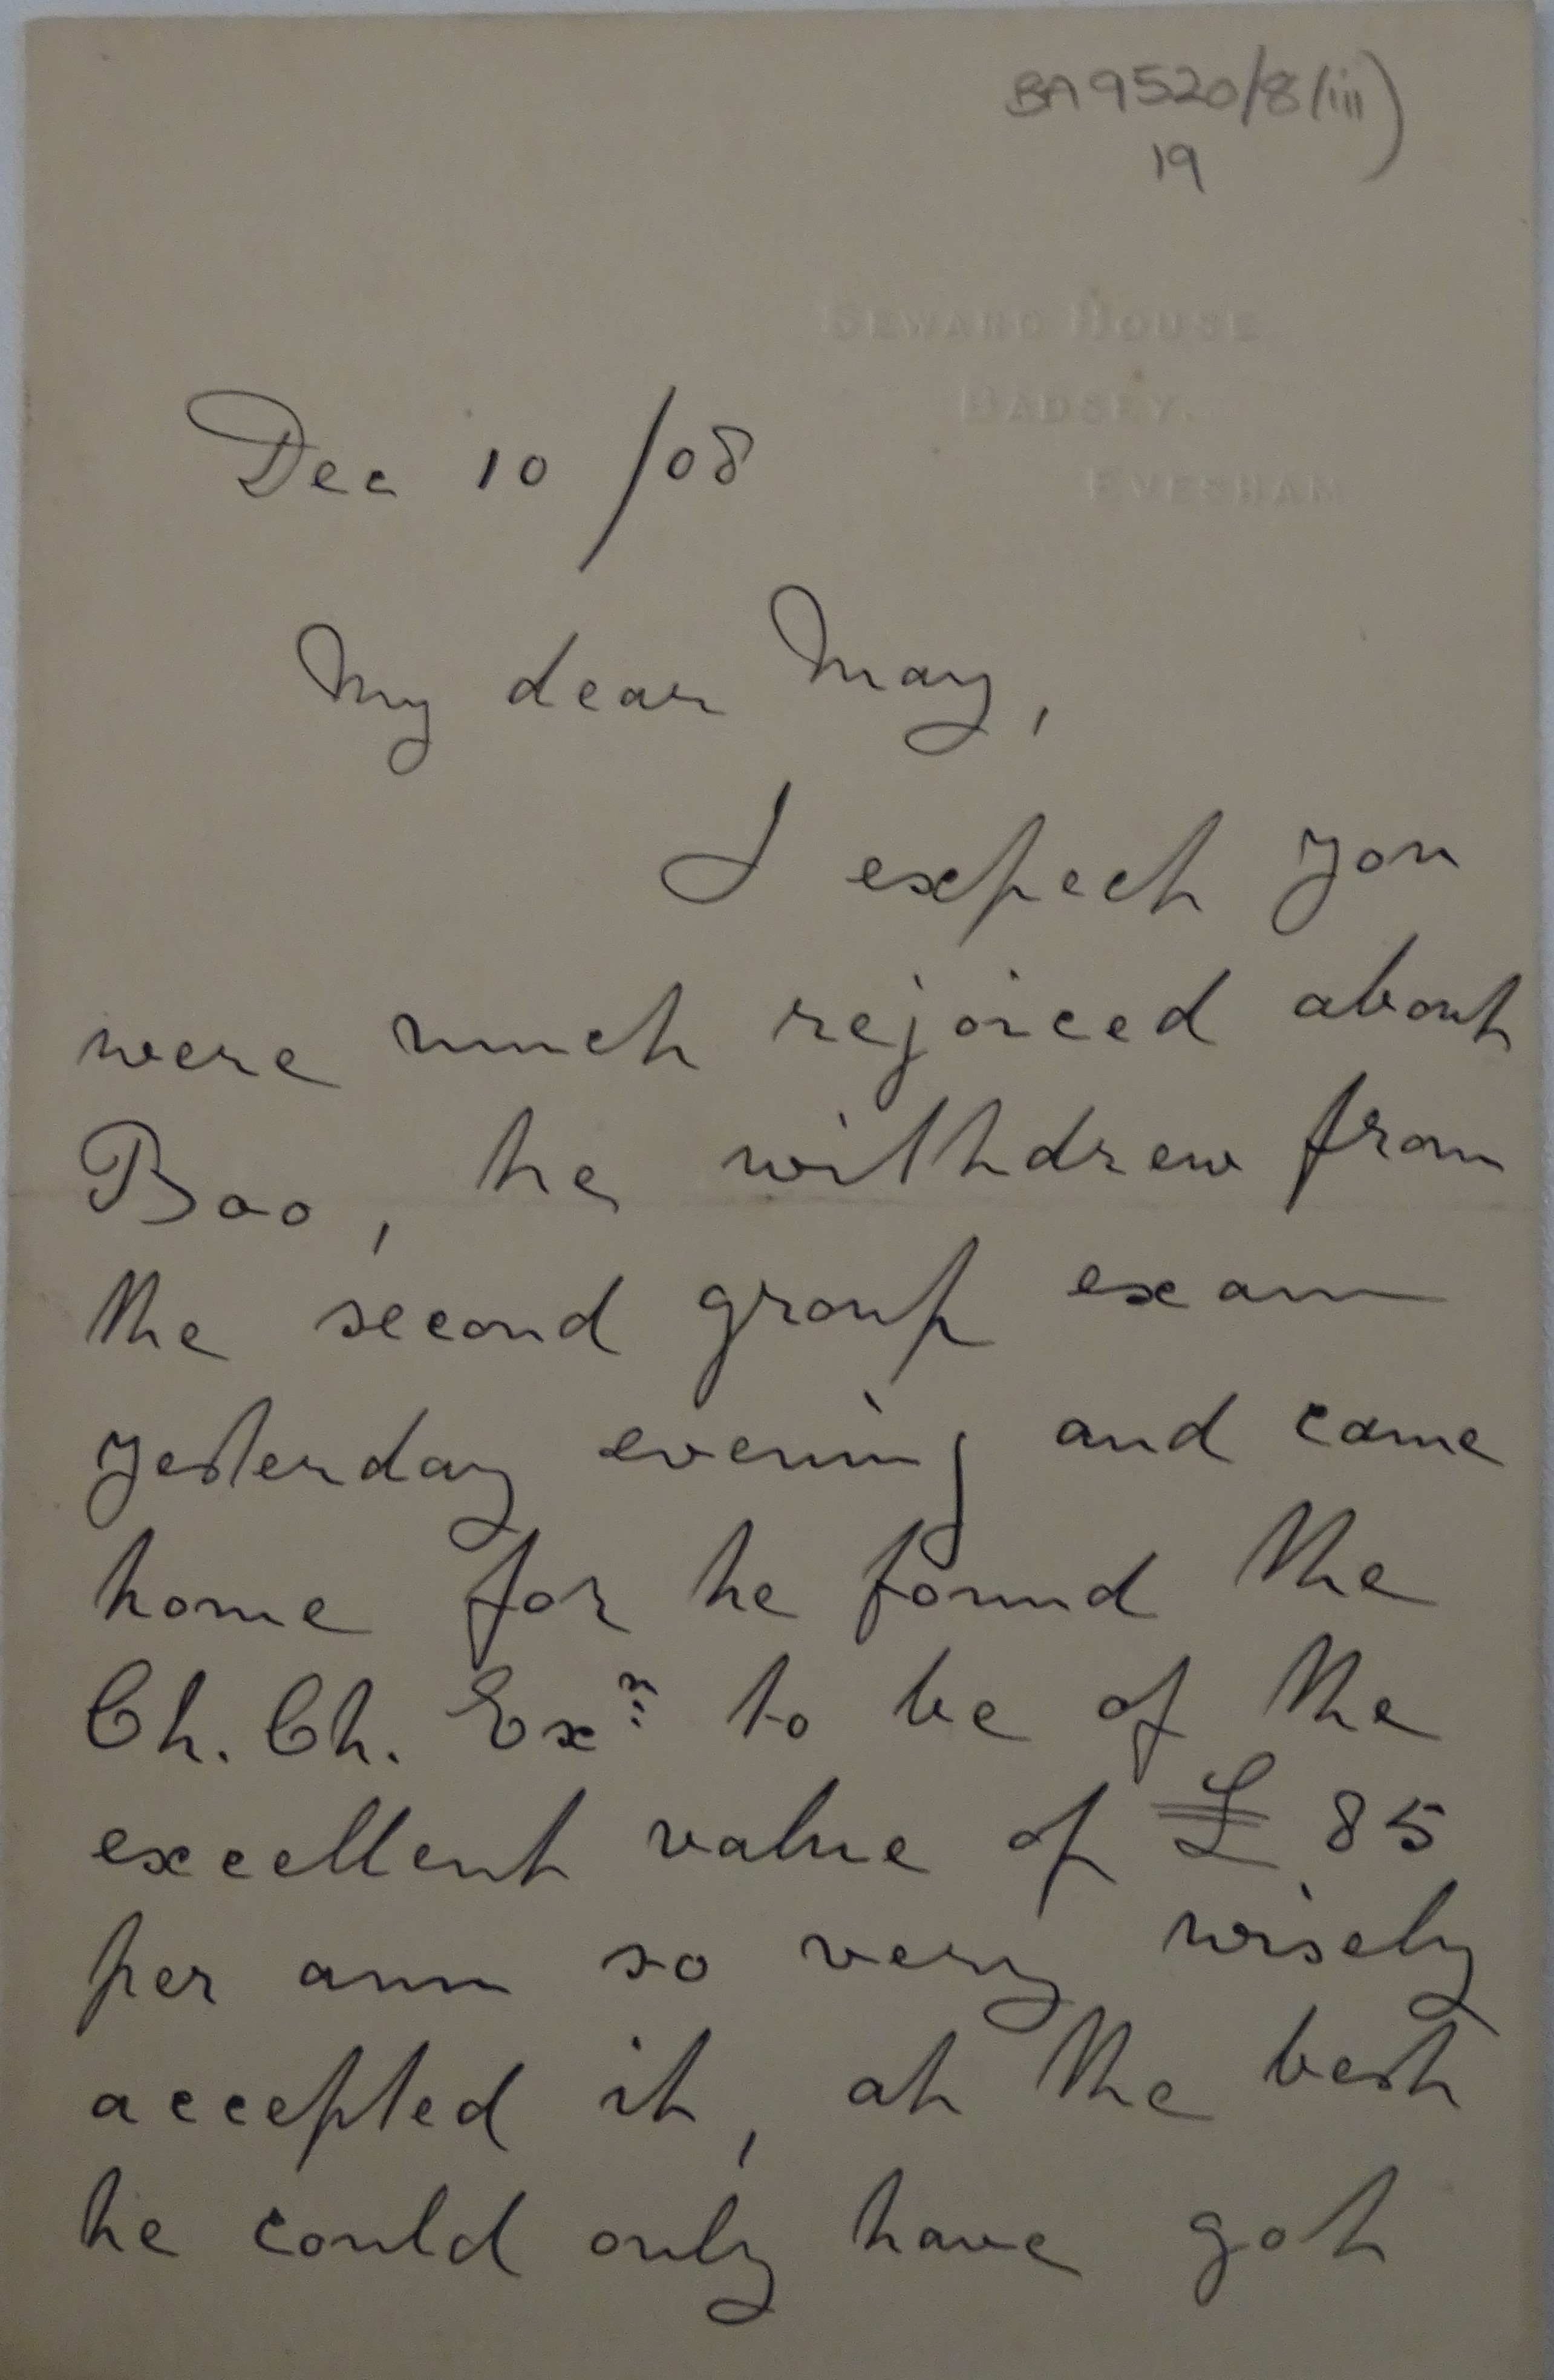 BA9520/8(iii)
19
SEWARD HOUSE.
BADSEY.
EVESHAM
Dec 10/08
My dear May,
I expect you
were much rejoiced about
Boo, he withdrew from
the second group exam
yesterday evening and came
home for he found the
Ch. Ch. Exn to be of the
excellent value of £85
per ann so very wisely
accepted it, at the best
he could only have got